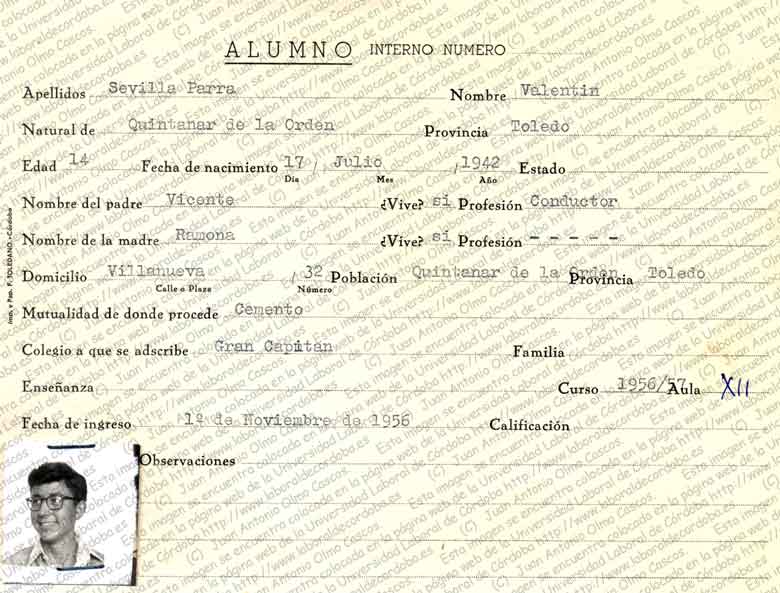 ALUMNO INTERNO NUMERO
Apellidos Sevilla Parra Nombre Valentin
Natural de Quintanar de la Orden Provincia Toledo
Edad 14 Fecha de nacimiento 17 / Julio / 1942 Estado
Día Mes Año
Nombre del padre Vicente ¿Vive? si Profesión Conductor
Nombre de la madre Ramona ¿Vive? si Profesión - - - - -
Domicilio Villanueva / 32 Población Quintanar de la Orden Provincia Toledo
Calle o Plaza Número
Mutualidad de donde procede Cemento
Colegio a que se adscribe Gran Capitan Familia
Enseñanza Curso 1956/57 Aula XII
Fecha de ingreso 1º de Noviembre de 1956 Calificación
Observaciones
Imp. y Pap. F. TOLEDANO.-Córdoba
(C) Juan Antonio Olmo Cascos. Esta imagen se encuentra colocada en la página web de la Universidad Laboral de Córdoba http://www.laboraldecordoba.es